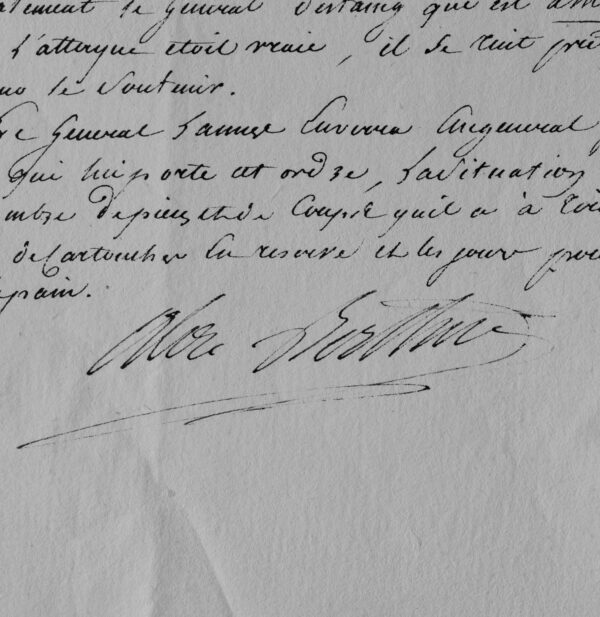 alement le Général Destaing que est
l'attaque etoit vraie, il se tint
le Soutenir.
General Lannuse Enverra General
qui lui porte cet ordre, La Situation
de pieces et de Coups qu'il a à
de Cartouches En reserve et les jours
pain.
Alex Berthier